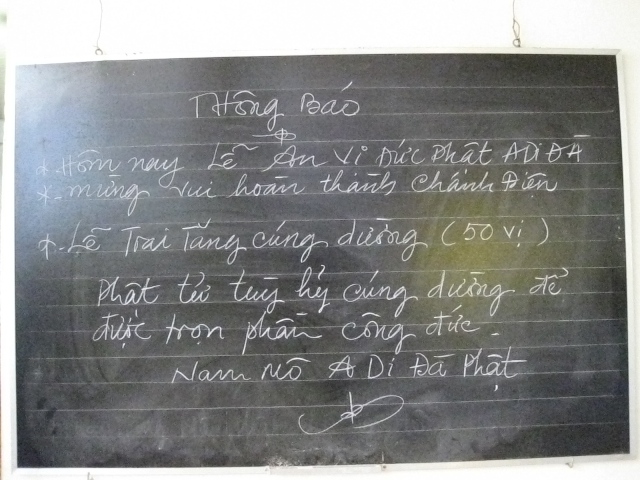 Thông Báo
* - Hôm nay Lễ An Vị Đức Phật A Di Đà
* - mừng vui hoàn thành Chánh Điện
* - Lễ Trai Tăng cúng dường (50 vị)
Phật tử tuỳ hỷ cúng dường để
được trọn phần công đức -
Nam Mô A Di Đà Phật